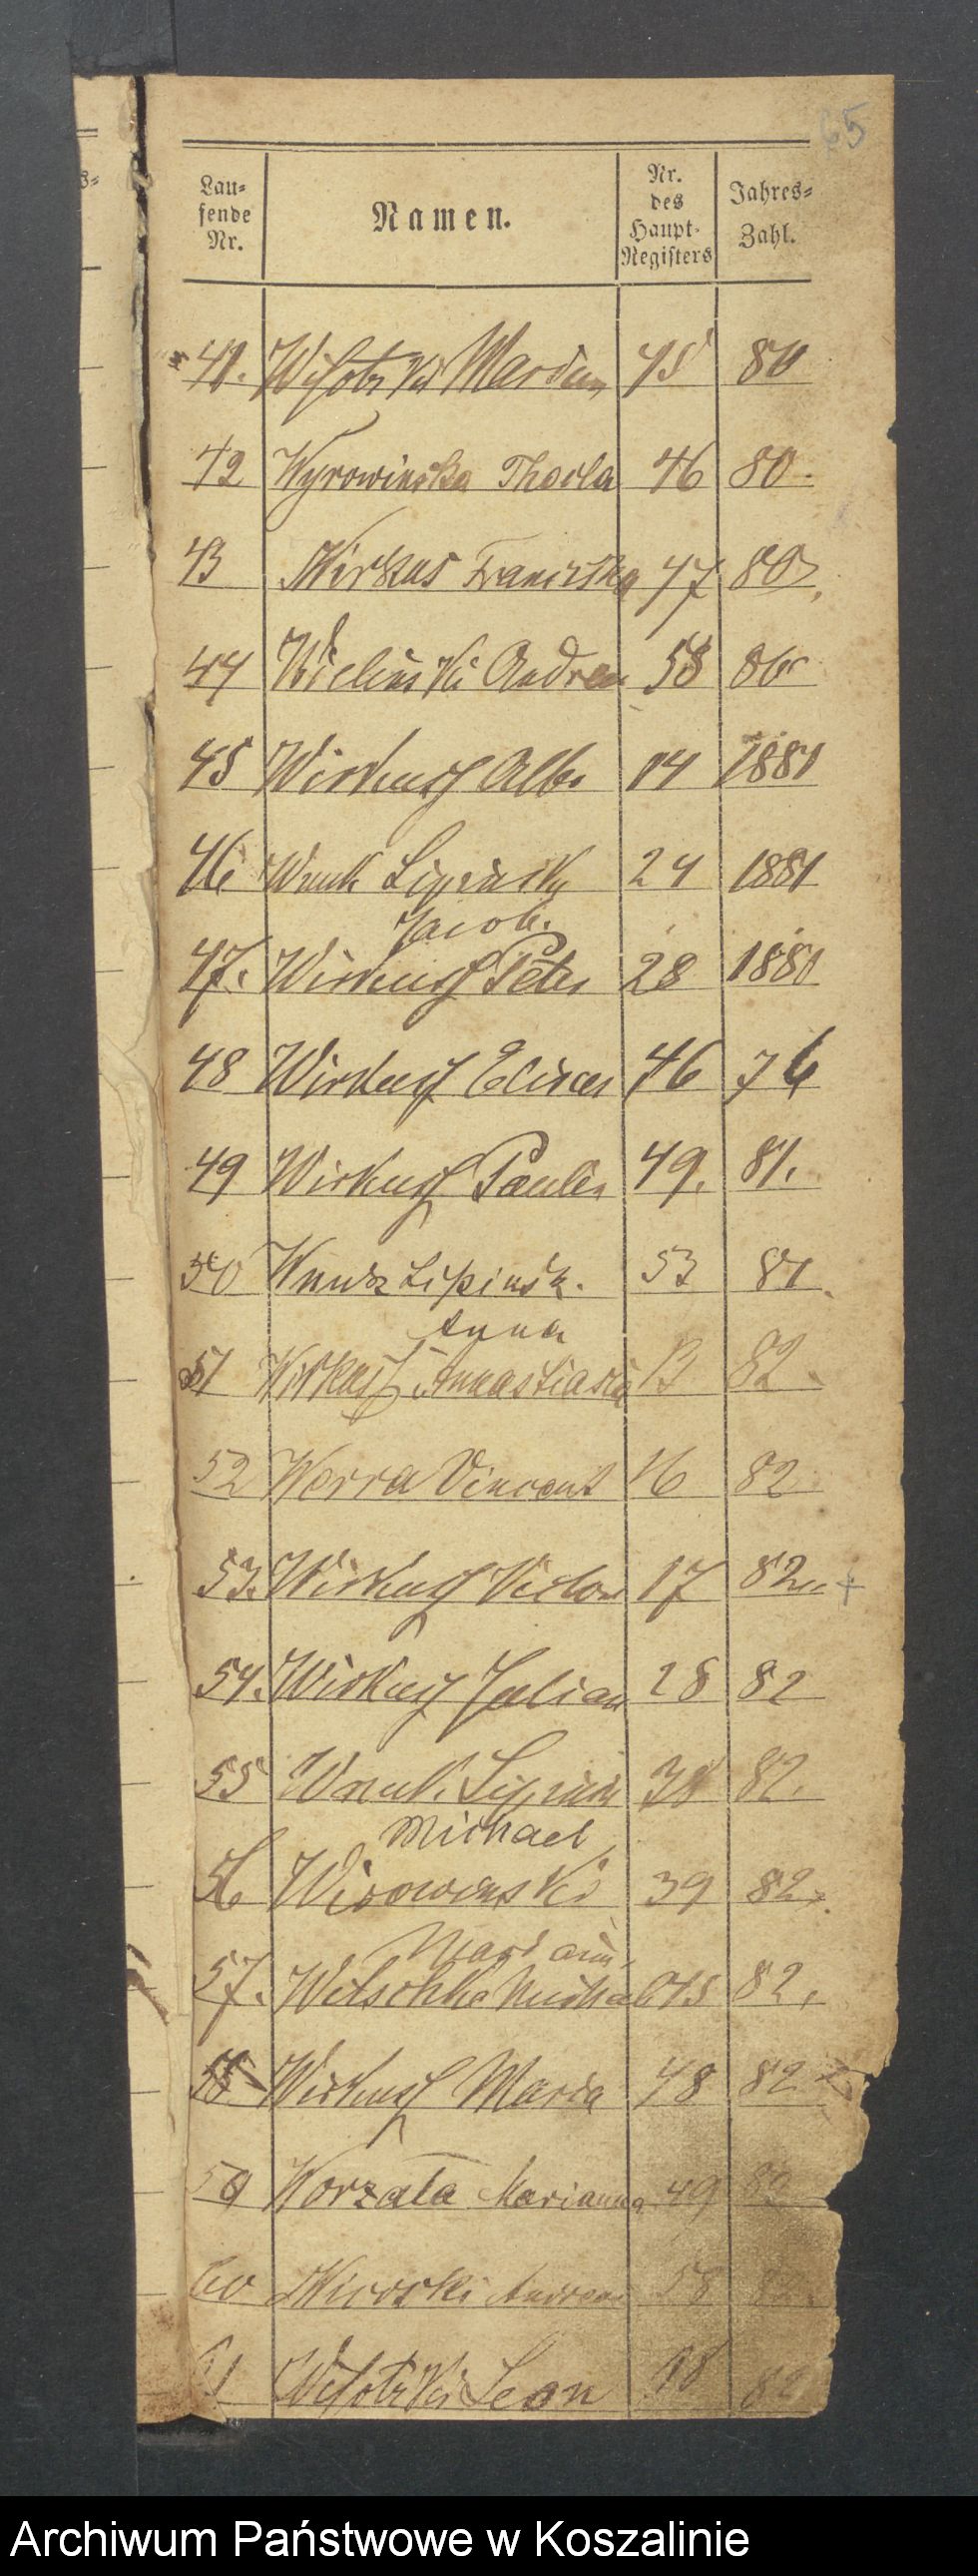 65
Lau-
fende
Nr.
Namen.
Nr.
des
Haupt-
Registers
Jahres-
Zahl.
41. 45 80
42 Wyrowinska Thecla 46 80.
43 Wirkus Franziska 47 80
44 Wielinski Andreas 58 80
45 Wirkus Alb. 14 1881
46 Wnuk Lipinsky 24 1881
Jacob.
47. Wirkus Peter 28 1881
48 Wirkus 46 76
49 Wirkus Paulin 49. 81.
50 Wnuk Lipinsk. 53 81
Anna
51 Wirkus Annastasia 13 82
52 Werra Vincent 16 82
53. Wirkus Victor 17 82
54. Wirkus Julian 28 82
55 Wnuk. Lipinsk 38 82.
Michael
56 Wirowinski 39 82
Mariann
57. Michael 45 82.
58 Wirkus Maria 48 82
59 Worzala Marianna 49 82
60 Andreas 58 82
61 Leon 18 82
Archiwum Państwowe w Koszalinie